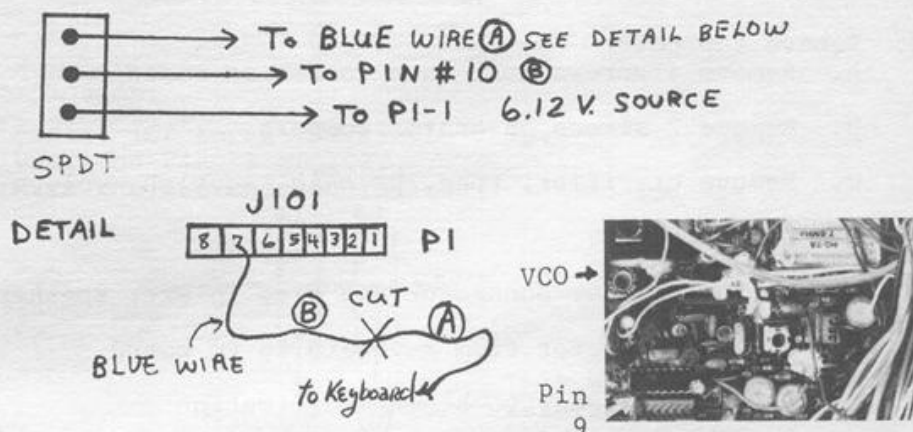 To BLUE WIRE (A) SEE DETAIL BELOW
To PIN # 10 (B)
To P1-1 6.12 V. SOURCE
SPDT
DETAIL
J101
8 7 6 5 4 3 2 1 P1
(B) CUT (A)
BLUE WIRE
to Keyboard
VCO
Pin
9